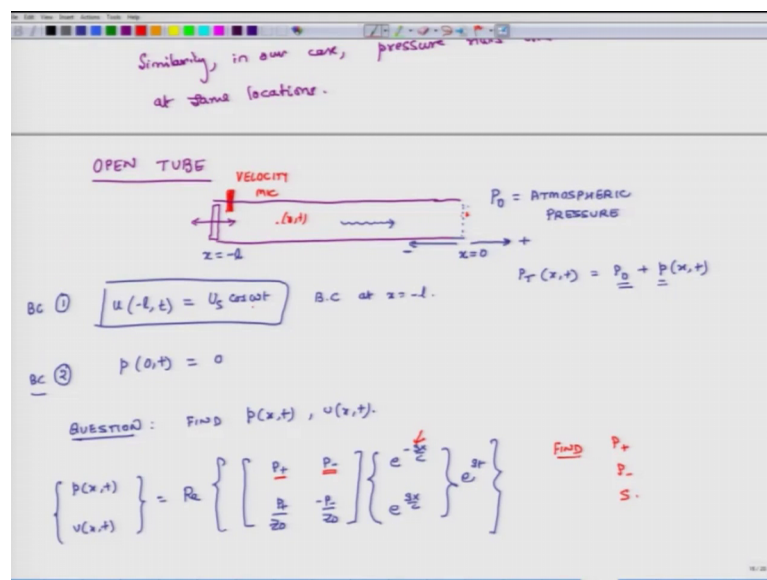 Edit View Insert Actions Tools Help
Similarly, in our case, pressure
at same locations.
OPEN TUBE
VELOCITY
MIC
(x,t)
P0 = ATMOSPHERIC
PRESSURE
x = -l
-
x=0
+
PT (x,t) = P0 + p(x,t)
BC ① u(-l, t) = Us cos ωt B.C at x = -l.
BC ② p(0,t) = 0
QUESTION: FIND p(x,t), U(x,t).
{ p(x,t) U(x,t) } = Re { [ P+ P- P+/Z0 -P-/Z0 ] { e^(-sx/c) e^(sx/c) } e^(st) }
FIND P+
P-
S.